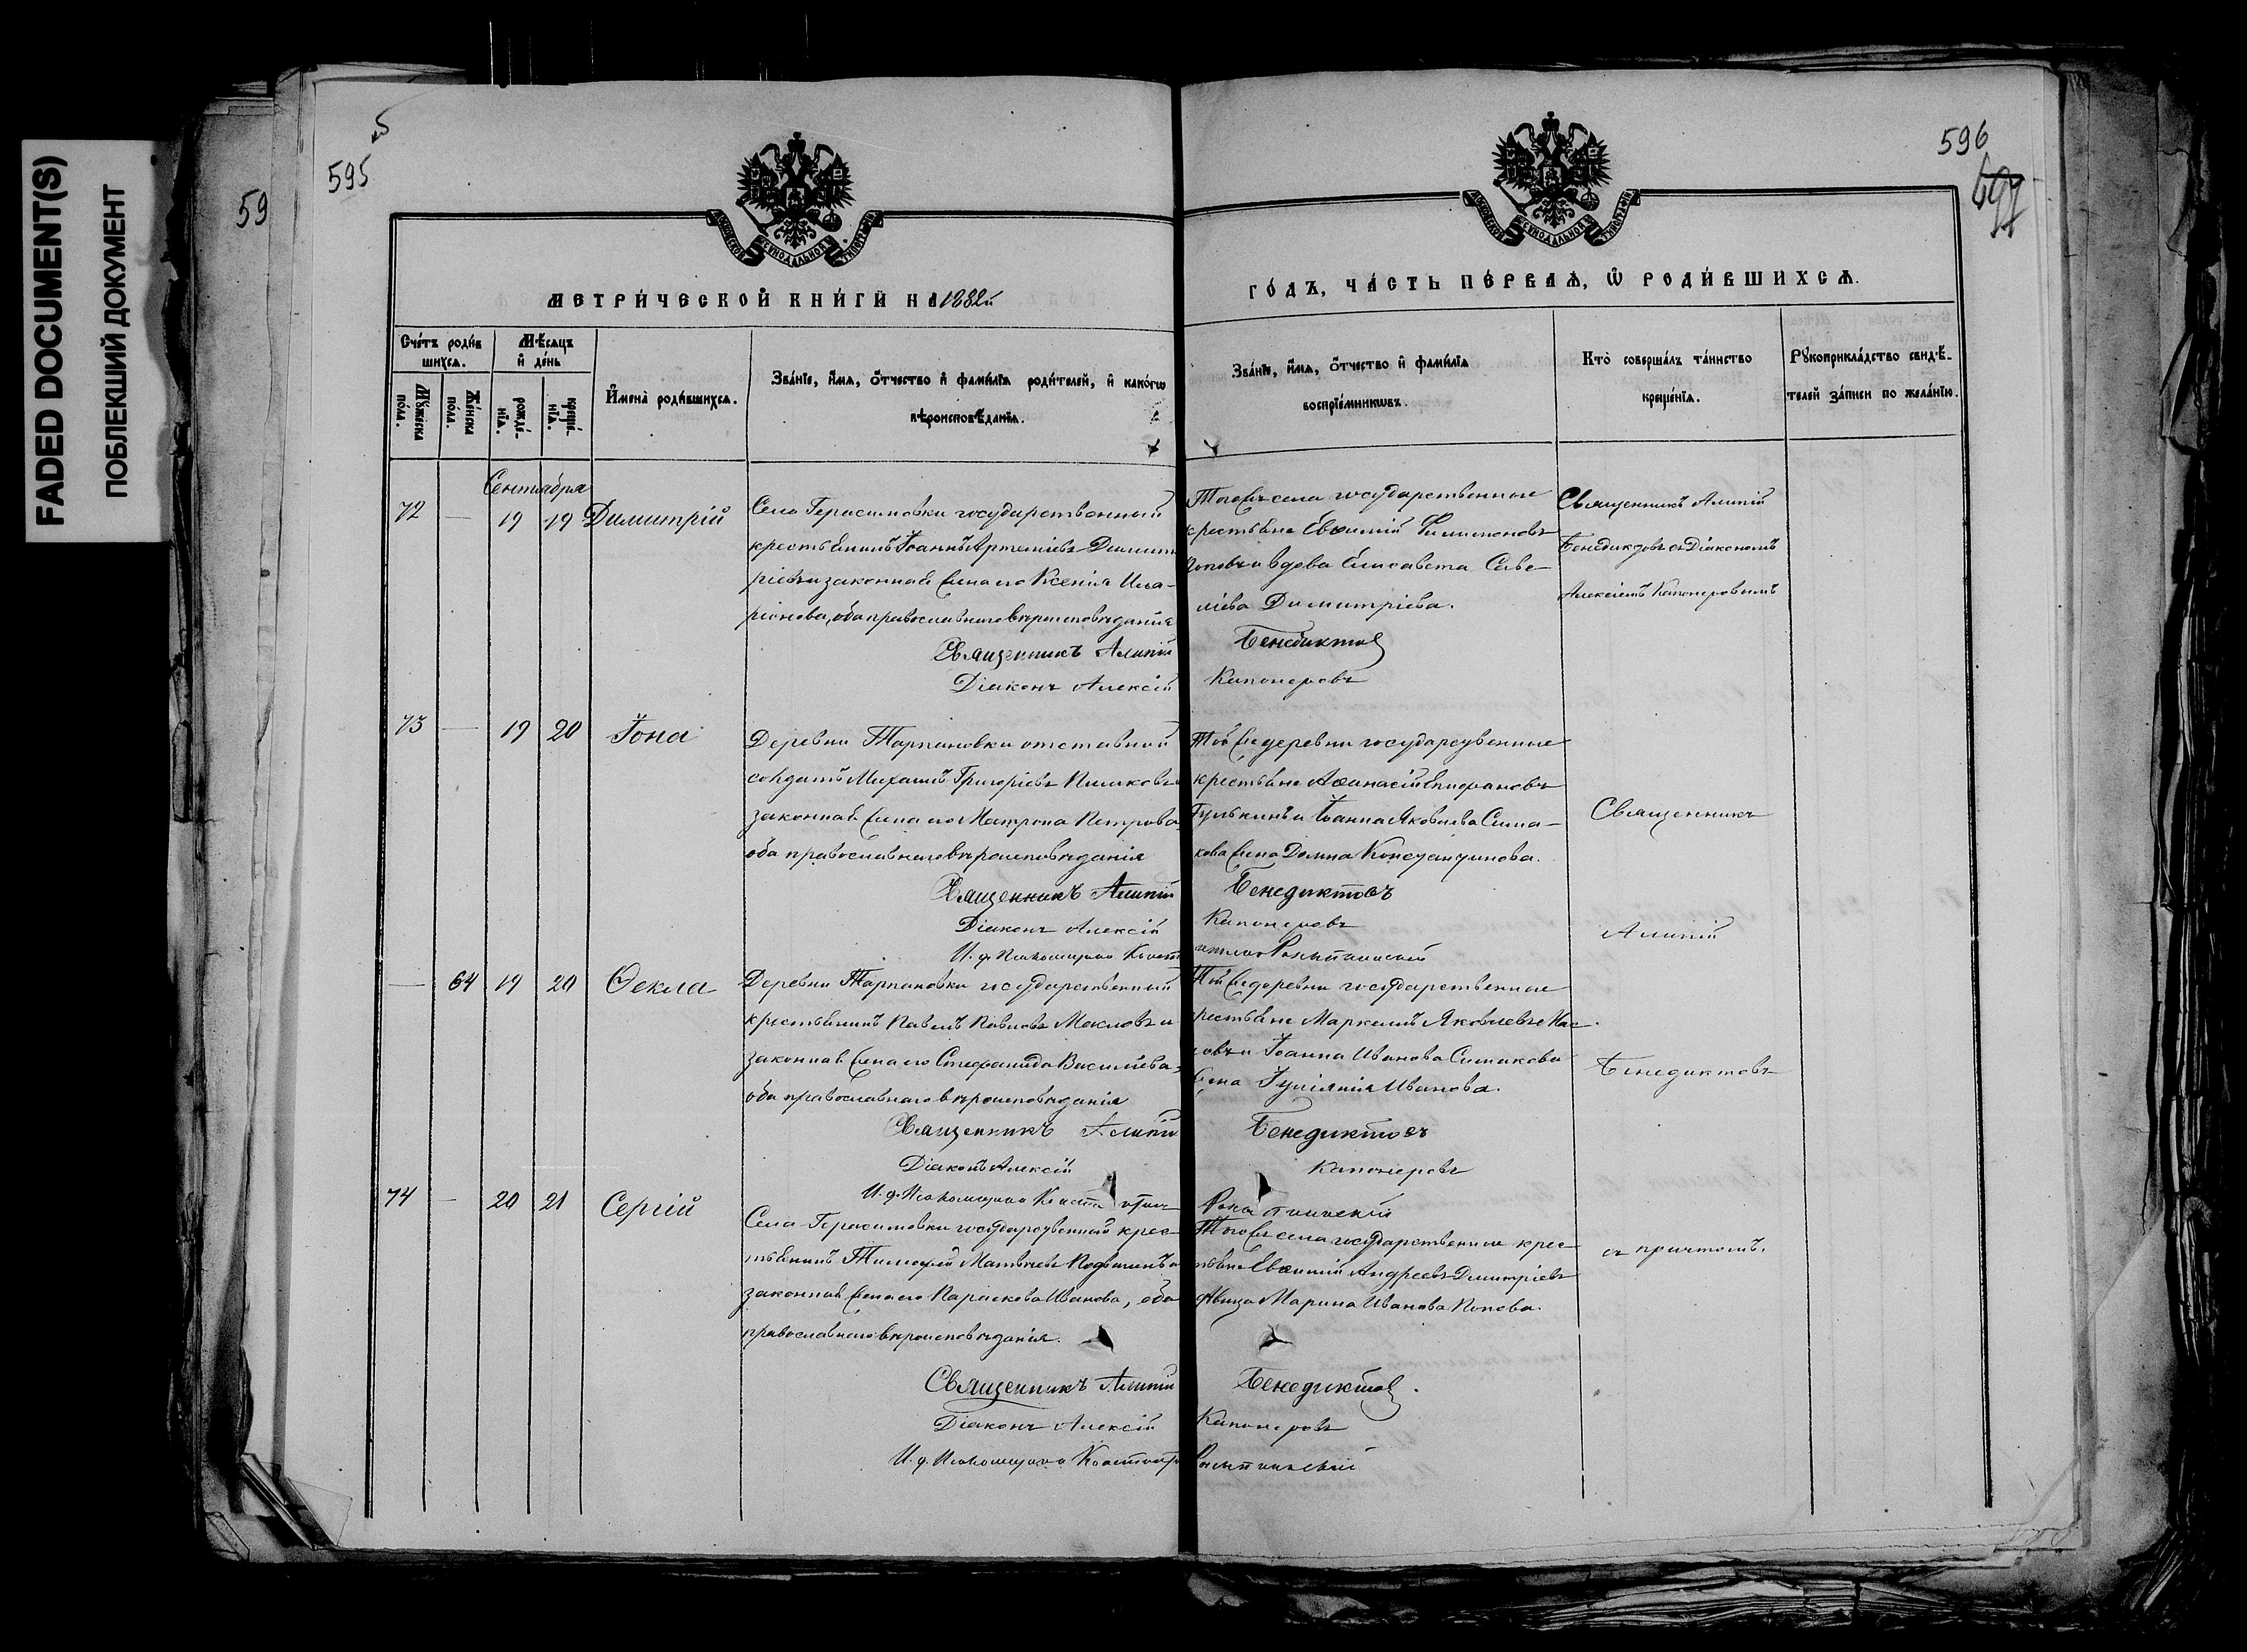 FADED DOCUMENT(S)
ПОБЛЕКШИЙ ДОКУМЕНТ
59
5
595
596
МОСКОВСКОЙ СѴНОДАЛЬНОЙ ТИПОГРАФІИ
МОСКОВСКОЙ СѴНОДАЛЬНОЙ ТИПОГРАФІИ
МЕТРИ́ЧЕСКОЙ КНИ́ГИ НА 1882й
ГО́ДЪ, ЧА́СТЬ ПЕ́РВАѦ, Ѡ РОДИ́ВШИХСѦ.
Сче́тъ роди́в
шихсѧ.
Мѣ́сѧцъ
и де́нь
Мꙋ́жеска
по́ла.
Же́нска
по́ла.
рожде́-
нїѧ.
креще́-
нїѧ.
И҆мена̀ роди́вшихсѧ.
Зва́нїе, и҆́мѧ, ѻ҆́тчество и҆ фами́лїѧ роди́телей, и҆ како́гѡ
вѣроисповѣ́данїѧ.
Зва́нїе, и҆́мѧ, ѻ҆́тчество и҆ фами́лїѧ
воспрїе́мникѡвъ.
Кто̀ соверша́лъ та́инство
креще́нїѧ.
Рꙋкоприкла́дство свидѣ́-
телей за́писи по жела́нїю.
Сентября
72 — 19 19 Димитрій
Село Герасимовки государственный
крестьянинъ Іоаннъ Артеміевъ Димит
ріевъ и законная жена его Ксенія Ила-
ріонова, оба православнаго вѣроисповѣданія
Священникъ Алипій
Діаконъ Алексій
Тогожъ села государственные
крестьяне Евѳимій Филимоновъ
Поповъ и вдова Елисавета Саве-
ліева Димитріева.
Бенедиктов
Капонеровъ
Священникъ Алипій
Бенедиктовъ съ Діакономъ
Алексіемъ Капонеровымъ
73 — 19 20 Іона
Деревни Тарпановки отставной
солдатъ Михаилъ Григоріевъ
законная жена его Матрона Петрова,
оба православнаго вѣроисповѣданія
Священникъ Алипій
Діаконъ Алексій
И. д. Псаломщика
Той же деревни государственные
крестьяне Аѳанасій Епифановъ
и Іоанна Яковлева Сима-
кова жена Домна Константинова.
Бенедиктовъ
Капонеровъ
Священникъ
Алипій
— 64 19 20 Ѳекла
Деревни Тарпановки государственный
крестьянинъ Павелъ Павловъ и
законная жена его Стефанида Васильева,
оба православнаго вѣроисповѣданія
Священникъ Алипій
Діаконъ Алексій
И. д. Псаломщика
Той же деревни государственные
крестьяне Маркеллъ Яковлевъ
и Іоанна Иванова Симакова
жена Іуліанія Иванова.
Бенедиктовъ
Капонеровъ
Бенедиктовъ
74 — 20 21 Сергій
Села Герасимовки государственный крес-
тьянинъ Тимофей Матвѣевъ и
законная жена его Параскева Иванова, оба
православнаго вѣроисповѣданія.
Священникъ Алипій
Діаконъ Алексій
И. д. Псаломщика
Тогожъ села государственные крес-
тьяне Евѳимій Андреевъ Димитріевъ
дѣвица Марина Иванова Попова.
Бенедиктов.
Капонеровъ
съ причтомъ.